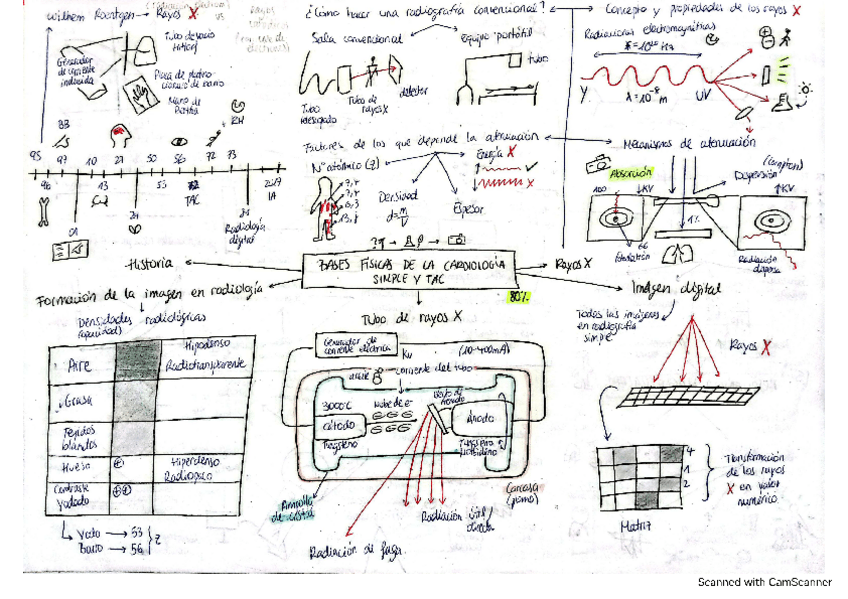 Wilhem Roentgen → Rayos X
Tubo de vacío
Hittorf
Generador
de corriente
inducida
Placa de platino
cianuro de bario
Mano de
Bertha
RH
95
97
10
27
50
56
72
73
96
01
13
53
TAC
Radiología
digital
IA
Historia
¿Cómo hacer una radiografía convencional?
Sala convencional
Equipo portátil
Tubo
Tubo de
rayos X
detector
tubo
Factores de los que depende la atenuación
Nº atómico (Z)
Densidad
d = m/V
Energía X
Espesor
Concepto y propiedades de los rayos X
Radiaciones electromagnéticas
γ
λ = 10⁻⁸ m
UV
Mecanismos de atenuación
Absorción
Dispersión
(Compton)
↓KV
↑KV
1%
Radiación
dispersa
BASES FÍSICAS DE LA CARDIOLOGÍA
SIMPLE Y TAC
80%
Rayos X
Formación de la imagen en radiología
Densidades radiológicas
(opacidad)
Aire
Hipodenso
Radiotransparente
Grasa
Tejidos
blandos
Hueso
Hiperdenso
Radiopaco
Contraste
yodado
Yodo → 53
Bario → 56
Z
Tubo de rayos X
Generador de
corriente eléctrica
Kv
(10-400mA)
corriente del tubo
3000ºC
Cátodo
Tungsteno
Nube de e-
Ánodo
Ampolla
de cristal
(carcasa
plomo)
Radiación útil/
directa
Radiación de fuga
Imagen digital
Todas las imágenes
en radiografía
simple
Rayos X
4
1
2
Matriz
Transformación
de los rayos
X en valor
numérico
Scanned with CamScanner